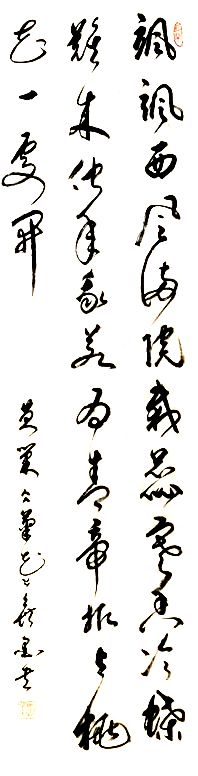 飒飒西风满院栽蕊寒香冷蝶
难来他年我若为青帝报与桃
花一处开
黄巢